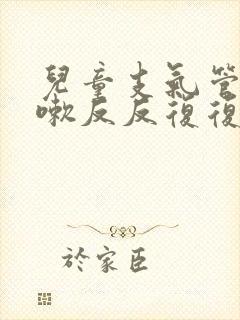 兒童支氣管
嗽反反復復
於家臣